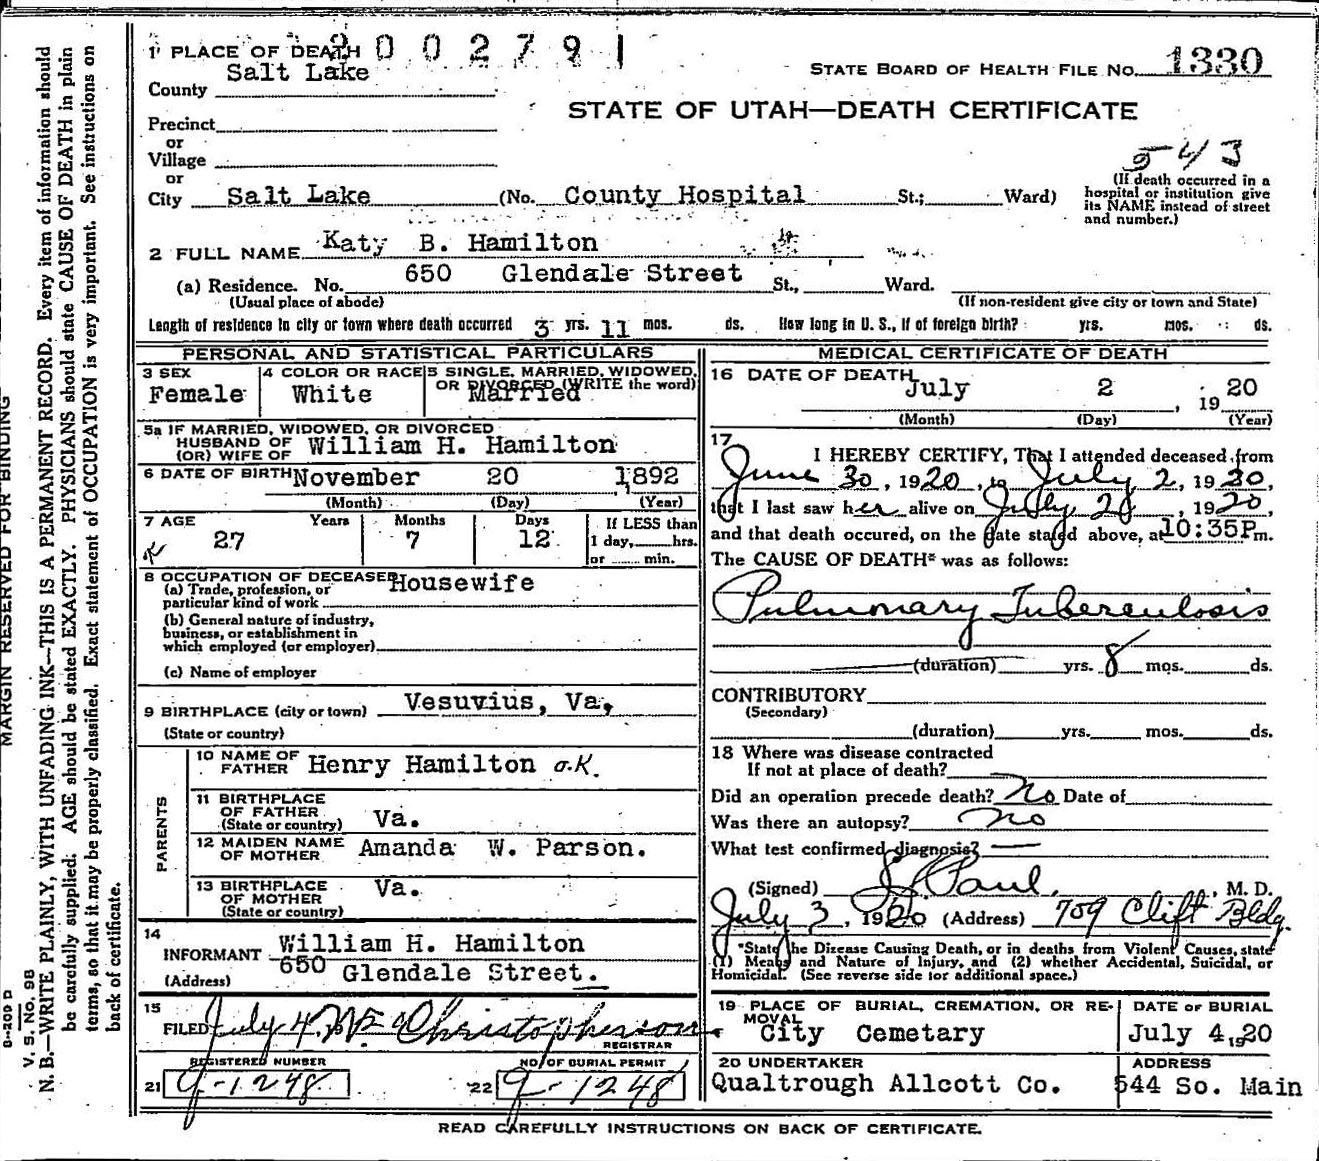 2002791
1 PLACE OF DEATH
STATE BOARD OF HEALTH FILE NO. 1330
County Salt Lake
STATE OF UTAH—DEATH CERTIFICATE
Precinct
or
Village
543
or
City Salt Lake (No. County Hospital St.; Ward)
(If death occurred in a hospital or institution give its NAME instead of street and number.)
2 FULL NAME Katy B. Hamilton
(a) Residence. No. 650 Glendale Street St., Ward.
(Usual place of abode) (If non-resident give city or town and State)
Length of residence in city or town where death occurred 3 yrs. 11 mos. ds. How long in U. S., if of foreign birth? yrs. mos. ds.
PERSONAL AND STATISTICAL PARTICULARS
3 SEX Female
4 COLOR OR RACE White
5 SINGLE, MARRIED, WIDOWED, OR DIVORCED (WRITE the word) Married
5a IF MARRIED, WIDOWED, OR DIVORCED
HUSBAND OF
(OR) WIFE OF William H. Hamilton
6 DATE OF BIRTH November 20 1892
(Month) (Day) (Year)
7 AGE Years Months Days If LESS than
27 7 12 1 day, hrs.
or min.
8 OCCUPATION OF DECEASED Housewife
(a) Trade, profession, or
particular kind of work
(b) General nature of industry,
business, or establishment in
which employed (or employer)
(c) Name of employer
9 BIRTHPLACE (city or town) Vesuvius, Va.
(State or country)
PARENTS
10 NAME OF FATHER Henry Hamilton o.K.
11 BIRTHPLACE
OF FATHER
(State or country) Va.
12 MAIDEN NAME
OF MOTHER Amanda W. Parson.
13 BIRTHPLACE
OF MOTHER
(State or country) Va.
14
INFORMANT William H. Hamilton
(Address) 650 Glendale Street.
15
FILED July 4, Christopherson
REGISTRAR
REGISTERED NUMBER NO. OF BURIAL PERMIT
21 9-1248 22 9-1248
MEDICAL CERTIFICATE OF DEATH
16 DATE OF DEATH July 2, 1920
(Month) (Day) (Year)
17
I HEREBY CERTIFY, That I attended deceased from
June 30, 1920, to July 2, 1920,
that I last saw her alive on July 2, 1920,
and that death occured, on the date stated above, at 10:35P m.
The CAUSE OF DEATH* was as follows:
Pulmonary Tuberculosis
(duration) yrs. 8 mos. ds.
CONTRIBUTORY
(Secondary)
(duration) yrs. mos. ds.
18 Where was disease contracted
If not at place of death?
Did an operation precede death? no Date of
Was there an autopsy? no
What test confirmed diagnosis?
(Signed) Paul, M. D.
July 3, 1920 (Address) 709 Clift Bldg.
*State the Disease Causing Death, or in deaths from Violent Causes, state
(1) Means and Nature of Injury, and (2) whether Accidental, Suicidal, or
Homicidal. (See reverse side for additional space.)
19 PLACE OF BURIAL, CREMATION, OR REMOVAL DATE OF BURIAL
City Cemetary July 4, 1920
20 UNDERTAKER ADDRESS
Qualtrough Allcott Co. 544 So. Main
READ CAREFULLY INSTRUCTIONS ON BACK OF CERTIFICATE.
MARGIN RESERVED FOR BINDING
V. S. No. 98
N. B.—WRITE PLAINLY, WITH UNFADING INK—THIS IS A PERMANENT RECORD. Every item of information should
be carefully supplied. AGE should be stated EXACTLY. PHYSICIANS should state CAUSE OF DEATH in plain
terms, so that it may be properly classified. Exact statement of OCCUPATION is very important. See instructions on
back of certificate.